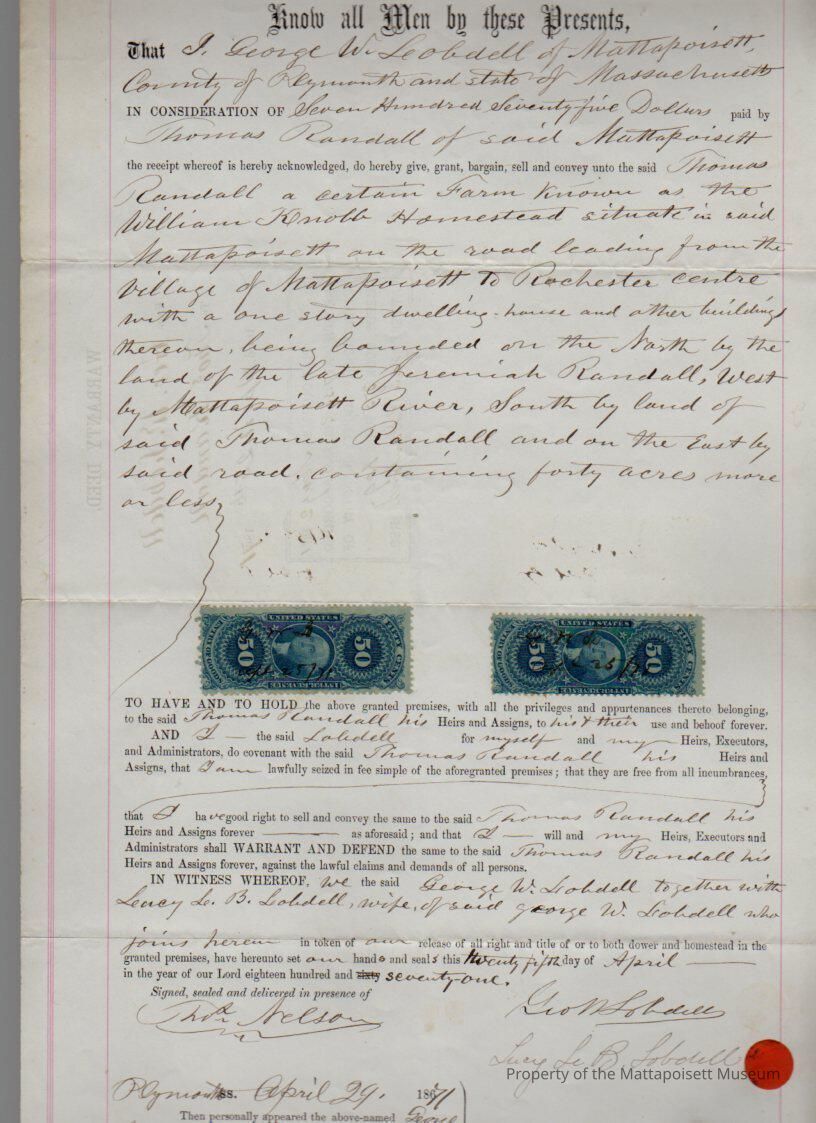 Know all Men by these Presents,
That I, George W. Lobdell of Mattapoisett,
County of Plymouth and state of Massachusetts
IN CONSIDERATION OF Seven Hundred Seventy five Dollars paid by
Thomas Randall of said Mattapoisett
the receipt whereof is hereby acknowledged, do hereby give, grant, bargain, sell and convey unto the said Thomas
Randall a certain Farm Known as the
William Homestead situate in said
Mattapoisett on the road leading from the
Village of Mattapoisett to Rochester centre
with a one story dwelling-house and other buildings
thereon, being bounded on the North by the
land of the late Jeremiah Randall, West
by Mattapoisett River, South by land of
said Thomas Randall and on the East by
said road, containing forty acres more
or less,
WARRANTY DEED.
UNITED STATES
50 50
FIFTY CENTS
UNITED STATES
50 50
FIFTY CENTS
TO HAVE AND TO HOLD the above granted premises, with all the privileges and appurtenances thereto belonging,
to the said Thomas Randall his Heirs and Assigns, to his & their use and behoof forever.
AND I the said Lobdell for myself and my Heirs, Executors,
and Administrators, do covenant with the said Thomas Randall his Heirs and
Assigns, that I am lawfully seized in fee simple of the aforegranted premises; that they are free from all incumbrances,
that I have good right to sell and convey the same to the said Thomas Randall his
Heirs and Assigns forever as aforesaid; and that I will and my Heirs, Executors and
Administrators shall WARRANT AND DEFEND the same to the said Thomas Randall his
Heirs and Assigns forever, against the lawful claims and demands of all persons.
IN WITNESS WHEREOF, we the said George W. Lobdell together with
Lucy Le B. Lobdell, wife, of said george W. Lobdell who
joins herein in token of our release of all right and title of or to both dower and homestead in the
granted premises, have hereunto set our hands and seals this twenty fifth day of April
in the year of our Lord eighteen hundred and sixty seventy-one.
Signed, sealed and delivered in presence of
Thos. Nelson
Geo W Lobdell
Lucy Le B. Lobdell
Property of the Mattapoisett Museum
Plymouth ss. April 29. 1871
Then personally appeared the above-named George